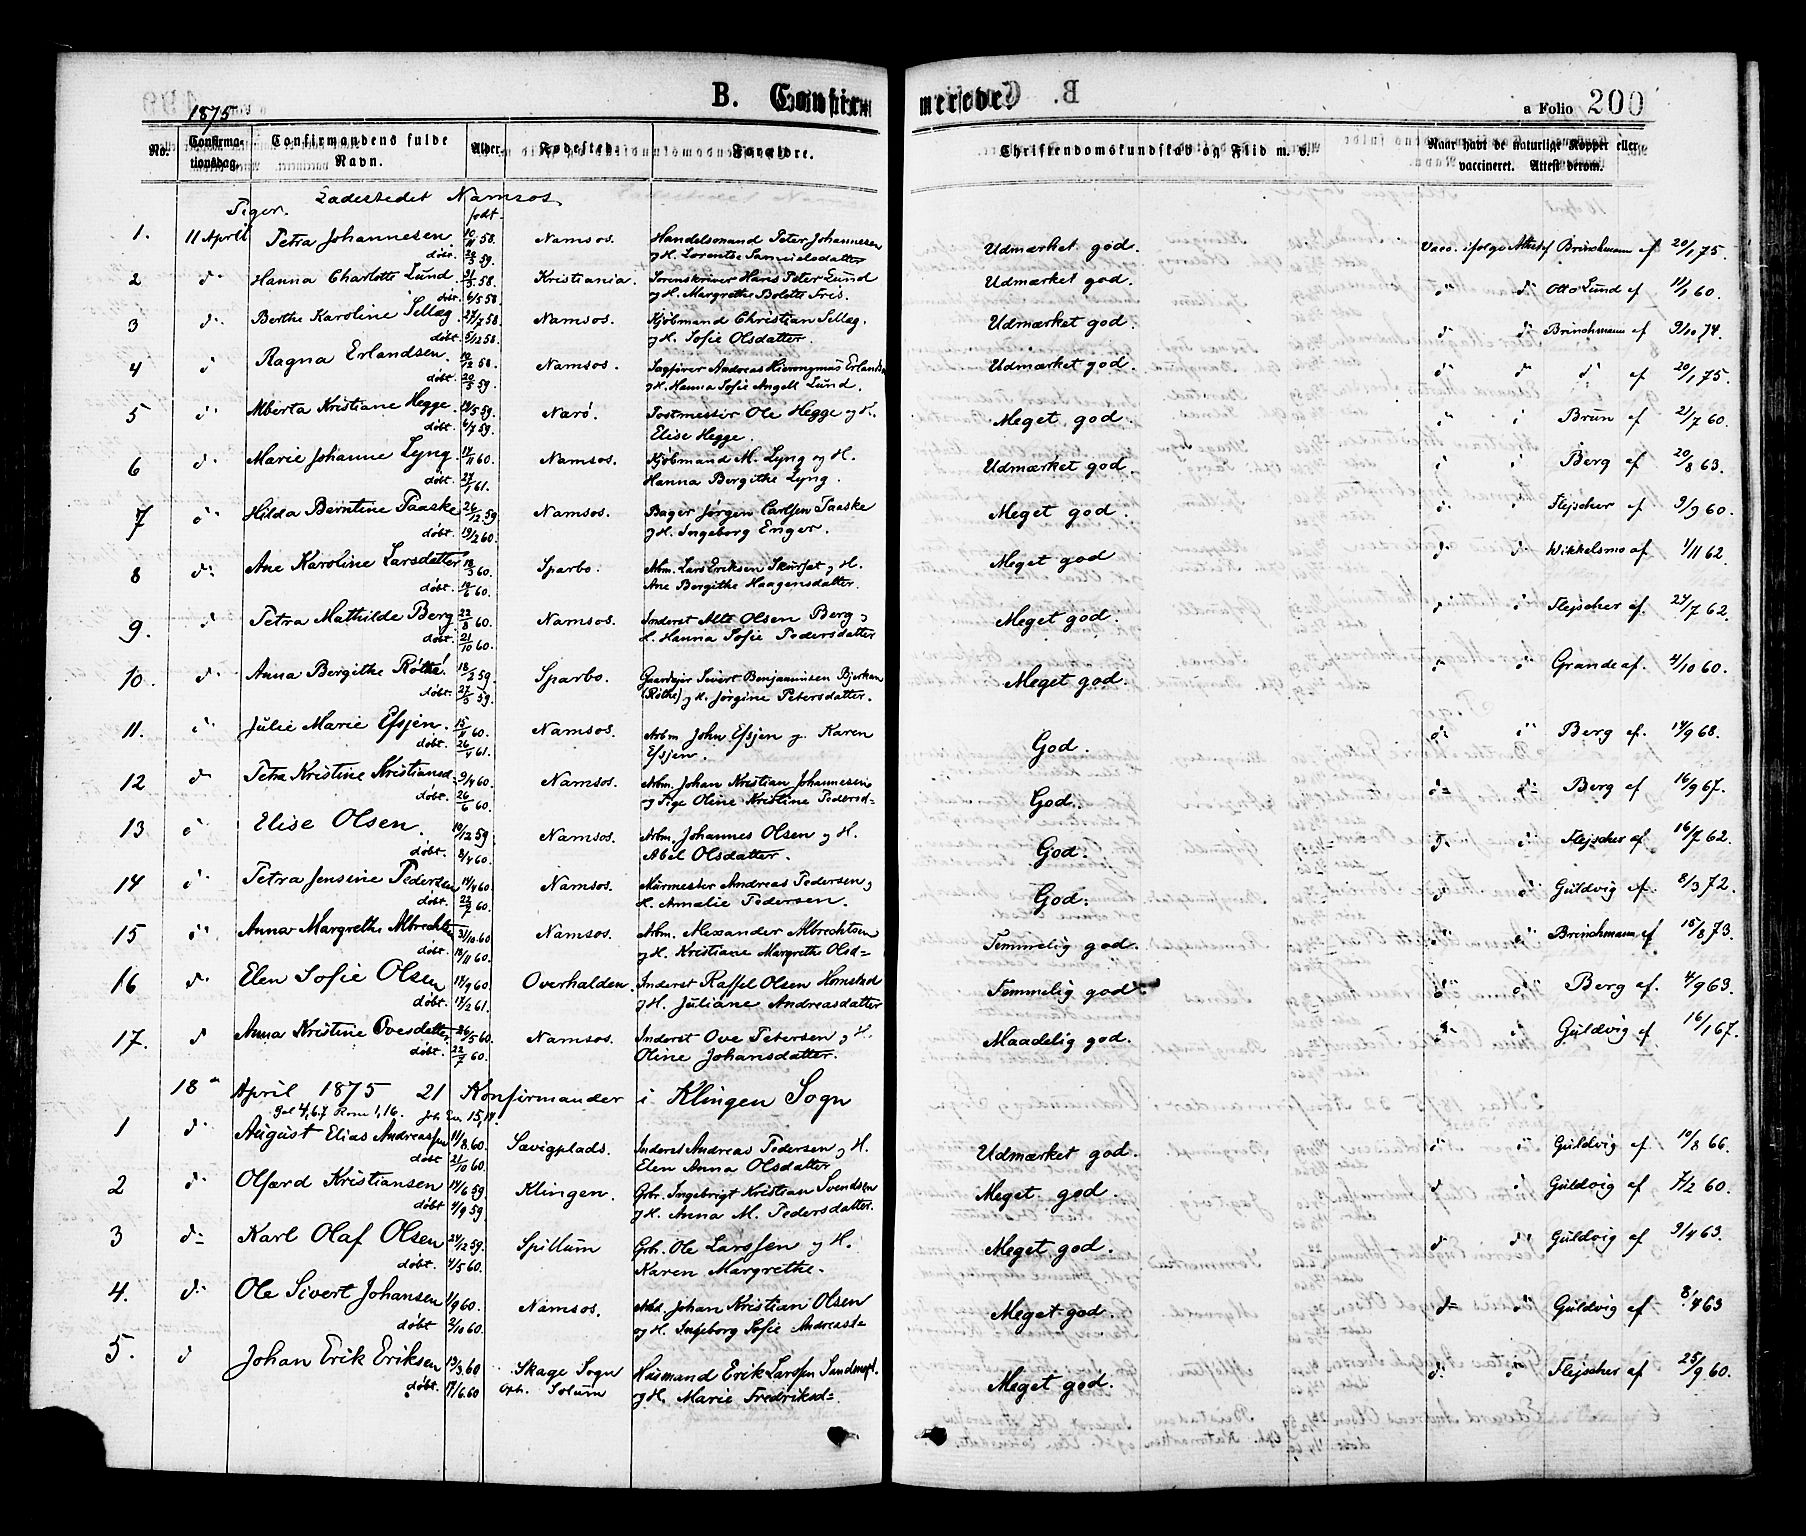 B. Confir merede.
a Folio 200
1875
No. Confirma- tionsdag. Confirmandens fulde Navn. Alder. Fødested. Forældre. Christendomskundskab og Flid m. v. Naar havt de naturlige Kopper eller vaccineret. Attest derom.
Ladestedet Namsos
Piger. født
1. 11 April Petra Johannesen 10/11 58. Namsos. Handelsmand Peter Johannesen Udmærket god. Vacc. ifølge Attest af Brinchmann af 20/1 75.
døbt. 59. og H. Lorentse Samuelsdatter
2 d° Hanna Charlotte Lund 58. Kristiania. Sorenskriver Hans Peter Lund Udmærket god. d° d° Otto Lund af 11/1 60.
døbt. 6/5 58. og H. Margrethe Bolette Friis.
3 d° Berthe Karoline Sellæg. 27/7 58. Namsos. Kjøbmand Christian Sellæg. Udmærket god. d° d° Brinchmann af 9/10 74.
døbt. 5/12 58. og H. Sofie Olsdatter.
4 d Ragna Erlandsen. 10/12 58. Namsos. Sagfører Andreas Hieronymus Erlandsen Udmærket god. d° d° d° af 20/1 75.
døbt. 20/3 59. og H. Hanna Sofie Angell Lund.
5 d° Alberta Kristiane Hegge. 59. Nærø. Postmester Ole Hegge og H. Meget god. Brun af 21/7 60.
døbt. 6/7 59. Elise Hegge.
6 d° Marie Johanne Lyng. 11/11 60. Namsos. Kjøbmand M. Lyng og H. Udmærket god. Berg af 20/8 63.
døbt. 27/1 61. Hanna Bergithe Lyng.
7 d° Hilda Berntine Paaske 26/12 59 Namsos. Bager Jørgen Carlsen Paaske Meget god. Flejscher af 9/9 60.
døbt. 19/2 60. og H. Ingeborg Enger.
8 d° Ane Karoline Larsdatter 18/3 60. Sparbo. Arbm. Lars Eriksen og H. Meget god d° d° Wikkelsmo af 1/11 62.
døbt. 60. Ane Bergithe Haagensdatter.
9. d Petra Mathilde Berg 22/8 60. Namsos. Inderst Olsen Berg og Meget god. Flejscher af. 24/7 62.
døbt. 21/10 60. H. Hanna Sofie Pedersdatter
10. d° Anna Bergithe Røthe 18/2 59. Sparbo. Gaardejer Sivert Benjaminsen Bjerkan Meget god. Grande af. 4/10 60.
døbt. 27/3 59. (Røthe) og H. Jørgine Petersdatter.
11. d° Julie Marie Efsjen. 15/11 60. Namsos. Arbm. John Efsjen og Karen God. d° d° Berg af. 14/9 68.
døbt. 26/4 61. Efsjen.
12 d° Petra Kristine Kristiansd= 9/4 60. Namsos. Arbm. Johan Kristian Johannesen God. d= d= Berg af 16/9 67.
døbt. 26/6 60. og Pige Oline Kristine Pedersd=
13 d° Elise Olsen. 10/12 59. Namsos. Arbm. Johannes Olsen og H. God. Flejscher af. 16/7 62.
døbt. 60. Abel Olsdatter.
14 d° Petra Jensine Pedersen 60. Namsos. Murmester Andreas Pedersen og God. Guldvig af. 8/3 72.
døbt. 22/7 60. H. Amalie Pedersen.
15 d° Anna Margrethe Albrechtsen 31/10 60. Namsos. Arbm. Alexander Albrechtsen Temmelig god. d° d° Brinchmann af 15/8 73.
døbt. 18/11 60. og H. Kristiane Margrethe Olsd=
16 d° Elen Sofie Olsen 60. Overhalden. Inderst Raffel Olsen Homstad Temmelig god. Berg af. 4/9 63.
døbt. 17/2 61. og H. Juliane Andreasdatter
17. d Anna Kristine Ovesdatter 26/5 60. Namsos. Inderst Ove Petersen og H. Maadelig god. Guldvig af 16/1 67.
døbt. 22/7 60. Oline Johansdatter.
18 April 1875 21 Konfirmander i Klingen Sogn
Gal 4,6.7 Rom 1,16. Joh. Ev. 15,
1 d° August Elias Andreassen 11/8 60. Sævigplads. Inderst Andreas Pedersen og H. Udmærket god. d° d° Guldvig af 10/8 66.
døbt 21/10 60. Elen Anna Olsdatter
2 d° Olfærd Kristiansen 14/6 59. Klingen. Grbr. Ingebrigt Kristian Svendsen Meget god. d d° Guldvig af 7/2 60.
døbt 4/9 59. og H. Anna M. Pedersdatter.
3 d= Karl Olaf Olsen 24/12 59. Spillum Grbr. Ole Larssen og H. Meget god. d° d° Guldvig af 9/4 63.
døbt. 4/5 60. Karen Margrethe.
4. d° Ole Sivert Johansen 1/9 60. Namsos. Arbd. Johan Kristian Olsen Meget god. d= d° Guldvig af 8/4 63
døbt 2/10 60. og H. Ingeborg Sofie Andreasd=
5. d Johan Erik Eriksen 13/3 60 Skage Sogn Husmand Erik Larssen Meget god. d° d° Flejscher af 25/9 60.
døbt. 17/6 60 oph. Solum og H. Marie Fredriksd=